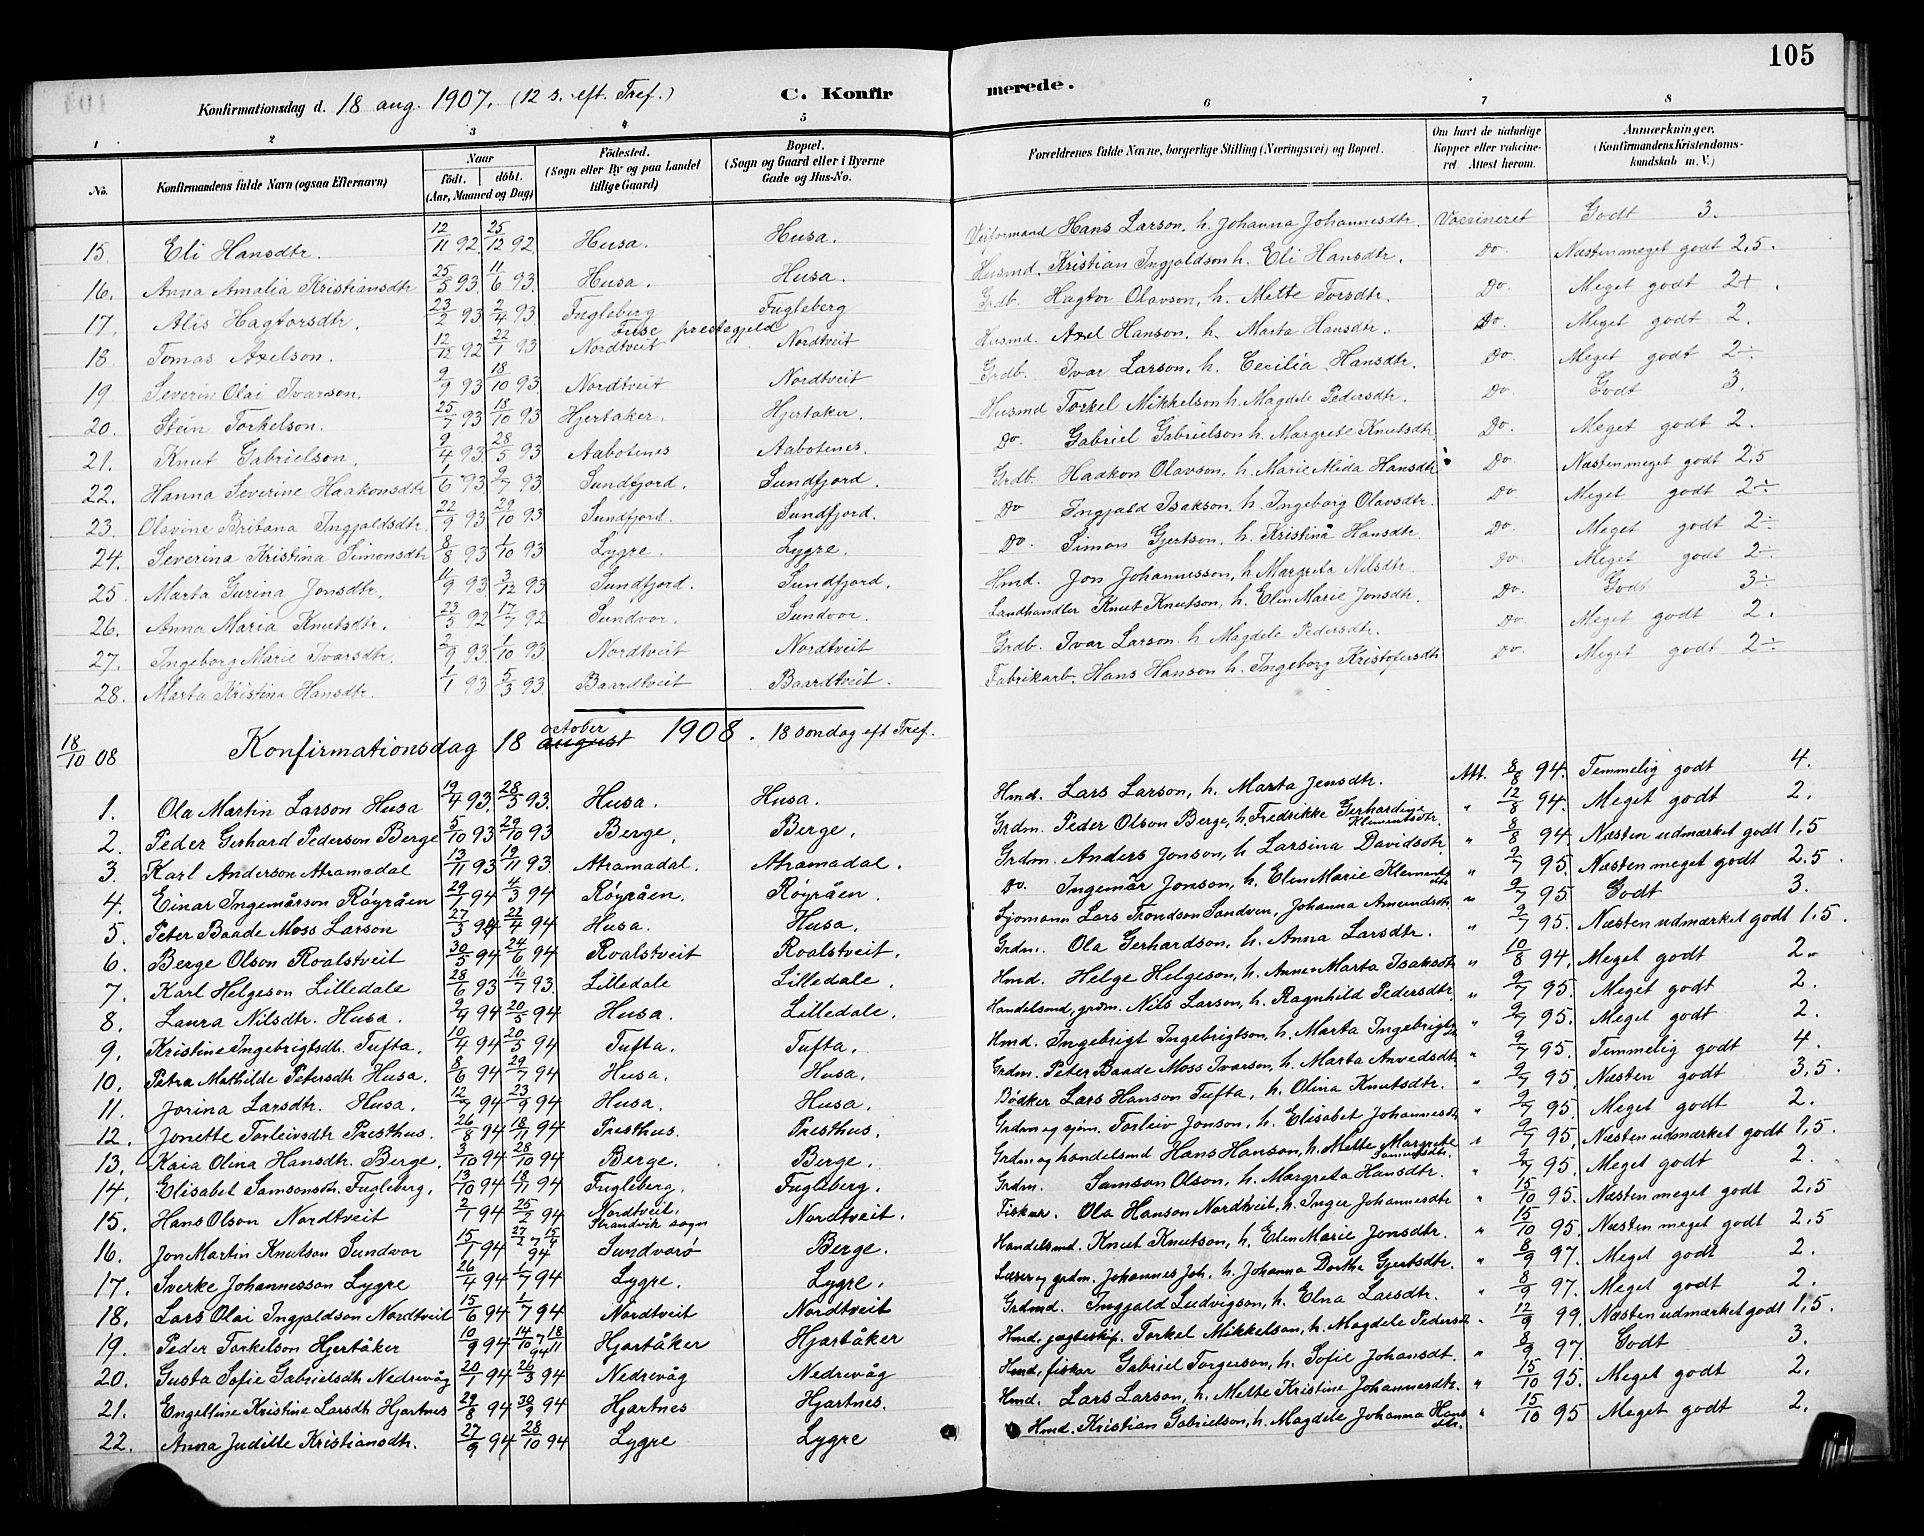 105
Konfirmationsdag d. 18 aug. 1907. (12 s. eft. Tref.) C. Konfirmerede.
1 2 3 4 5 6 7 8
No. Konfirmandens fulde Navn (ogsaa Efternavn) Naar født. døbt. (Aar, Maaned og Dag) Fødested. (Sogn eller By og paa Landet tillige Gaard) Bopæl. (Sogn og Gaard eller i Byerne Gade og Hus-No. Forældrenes fulde Navne, borgerlige Stilling (Næringsvei) og Bopæl. Om havt de naturlige Kopper eller vaccineret. Attest herom. Anmærkninger. (Konfirmandens Kristendomskundskab m. V.)
15 Eli Hansdtr. 12/11 92 25/12 92 Husa. Husa. Veiformand Hans Larson, h. Johanna Johannesdtr. Vaccineret Godt 3.
16. Anna Amalia Kristiansdtr 25/5 93. 11/6 93. Husa. Husa. Husmd. Kristian Ingjaldson h. Eli Hansdtr. Do Næsten meget godt 2,5.
17. Alis Hagtorsdtr. 23/2 93 2/4 93. Fugleberg Fugleberg Grdb. Hagtor Olavson, h. Mette Torsdtr. Do. Meget godt 2+.
18 Tomas Axelson. 12/12 92 22/1 93 Fuse prestegjeld Nordtveit Nordtveit Husmd. Axel Hanson, h. Marta Hansdtr. Do. Meget godt 2.
19 Severin Olai Ivarson. 9/9 93 18/10 93. Nordtveit Nordtveit Grdb. Ivar Larson, h. Cecilia Hansdtr. Do. Meget godt 2÷
20. Stein Torkelson. 25/7 93 18/10 93 Hjertaker. Hjertaker. Husmd Torkel Mikkelson h. Magdele Pedersdtr. Do. Godt 3.
21. Knut Gabrielson. 9/4 93. 28/5 93 Aabotenes Aabotenes. Do. Gabriel Gabrielson h. Margrete Knutsdtr Do. Meget godt 2.
22. Hanna Severine Haakonsdtr 1/6 93 9/7 93 Sundfjord. Sundfjord. Grdb. Haakon Olavson, h. Marie Alida Hansdtr Do. Næsten meget godt 2.5
23. Olavine Britana Ingjaldsdtr. 22/9 93 29/10 93 Sundfjord. Sundfjord. Do Ingjald Isakson, h. Ingeborg Olavsdtr. Do. Meget godt 2÷
24. Severina Kristina Simonsdtr 8/8 93 1/10 93 Lygre. Lygre. Do. Simon Gjertson, h. Kristina Hansdtr Do. Meget godt 2÷
25. Marta Gurina Jonsdtr. 11/9 93 3/12 93 Sundfjord. Sundfjord. Hmd. Jon Johannesson, h. Margreta Nilsdtr Do. Meget godt 2÷
26. Anna Maria Knutsdtr. 23/5 92 17/7 92 Sundvor. Sundvor. Landhandler Knut Knutson, h. Elin Marie Jonsdtr. Do. Godt 3÷
27. Ingeborg Marie Ivarsdtr. 2/9 93. 1/10 93 Nordtveit Nordtveit Grdb. Ivar Larson. h. Magdele Pedersdtr. Do. Meget godt 2.
28. Marta Kristina Hansdtr. 1/1 93 5/3 93. Baardtveit Baardtveit. Fabrikarb. Hans Hanson h. Ingeborg Kristofersdtr Do. Meget godt 2÷
18/10 08 Konfirmationsdag 18 august october 1908. 18 sondag eft Tref.
1. Ola Martin Larson Husa 19/4 93. 28/5 93. Husa. Husa. Hmd. Lars Larson, h. Marta Jensdtr. Att. 8/8 94. Temmelig godt 4.
2. Peder Gerhard Pederson Berge 5/10 93 29/10 93 Berge, Berge, Grdm. Peder Olson Berge, h. Fredrikke Gerhardine Klementsdtr. " 12/8 94. Meget godt 2.
3. Karl Anderson Atramadal 13/11 93 19/11 93. Atramadal. Atramadal. Grdm. Anders Jonson, h. Larsina Davidsdtr " 8/8 94. Næsten udmærket godt 1,5
4. Einar Ingemårson Røyråen 29/1 94 4/3 94 Røyråen. Røyråen. Do. Ingemår Jonson, h. Elen Marie Klementsdtr " 9/7 95. Næsten meget godt 2.5.
5. Peter Baade Moss Larson 27/3 94 22/4 94 Husa. Husa. Sjomann Lars Trondson Sandven, Johanna Amundsdtr " 9/7 95. Godt 3.
6. Berge Olson Roalstveit 30/5 94 24/6 94 Roalstveit Roalstveit. Grdm. Ola Gerhardson, h. Anna Larsdtr. " 9/7 95. Næsten udmærket godt 1,5.
7. Karl Helgeson Lilledale 28/6 93 16/7 93. Lilledale Lilledale. Hmd. Helge Helgeson, h. Anne Marta Isaksdtr " 10/8 94. Meget godt 2.
8. Laura Nilsdtr. Husa. 9/4 94 20/5 94 Husa. Lilledale. Handelsmd, grdm. Nils Larson, h. Ragnhild Pedersdtr " 9/7 95. Meget godt 2.
9. Kristine Ingebrigtsdtr. Tufta. 10/4 94 20/5 94 Tufta. Tufta. Hmd. Ingebrigt Ingebrigtson, h. Marta Ingebrigtsdtr " 9/7 95. Meget godt 2.
10. Petra Mathilde Petersdtr Husa. 8/6 94 29/7 94 Husa. Husa. Grdm. Peter Baade Moss Ivarson, h. Marta Arvedsdtr " 9/7 95. Temmelig godt 4.
11. Jorina Larsdtr. Husa. 12/7 94 23/9 94 Husa. Husa. Bødker Lars Hanson Tufta, h. Olina Knutsdtr. " 9/7 95. Næsten godt 3,5.
12. Jonette Torleivsdtr Presthus. 26/8 94 18/11 94 Presthus. Presthus. Grdm og sjøm. Torleiv Jonson, h. Elisabet Johannesdtr " 9/7 95. Meget godt 2.
13. Kaia Olina Hansdtr. Berge. 3/10 94 28/10 94 Berge. Berge. Grdm og handelsmd Hans Hanson, h. Mette Margrete Samuelsdtr. " 9/7 95. Næsten udmærket godt 1,5.
14. Elisabet Samsonsdtr. Fugleberg. 13/10 94 18/11 94 Fugleberg. Fugleberg. Grdm. Samson Olson, h. Margreta Hansdtr. " 9/7 95. Meget godt 2.
15. Hans Olson Nordtveit 2/1 94 25/2 94 Nordtveit. Strandvik sogn Nordtveit. Fisker. Ola Hanson Nordtveit, h. Inger Johannesdtr " 15/10 95. Næsten meget godt 2,5
16. Jon Martin Knutson Sundvor 15/1 94 27/2 15/4 94 Sundvorø Berge. Handelsmd. Knut Knutson, h. Elen Marie Jonsdtr. " 15/10 95. Næsten meget godt 2,5
17. Sverke Johannesson Lygre 26/4 94 1/7 94 Lygre. Lygre. Lærer og grdm. Johannes Joh. h. Johanna Dortha Gjertsdtr. " 8/9 97. Meget godt 2.
18. Lars Olai Ingjaldson Nordtveit 15/6 94 1/7 94 Nordtveit Nordtveit Grdmd. Ingjald Ludvigson, h. Elna Larsdtr. " 8/9 97. Meget godt 2.
19. Peder Torkelson Hjertåker 10/9 94 14/10 18/11 94 Hjartåker Hjartåker Hmd, jægteskip. Torkel Mikkelson, h. Magdele Pedersdtr " 12/9 99. Næsten udmærket godt 1,5.
20. Gusta Sofie Gabrielsdtr Nedrevåg 20/1 94 26/3 94 Nedrevåg Nedrevåg Hmd, fiskar Gabriel Torgerson, h. Sofie Johansdt. " 8/9 97. Godt 3.
21. Engeltine Kristine Larsdtr Hjartnes 29/8 94 30/9 94 Hjartnes Hjartnes. Hmd. Lars Larson, h. Mette Kristine Johannesdtr. " 15/10 95. Meget godt 2.
22. Anna Juditte Kristiansdtr. 27/9 94 28/10 94 Lygre Lygre Hmd. Kristian Gabrielson, h. Magdele Johanna Hansdtr. " 15/10 95 Meget godt 2.